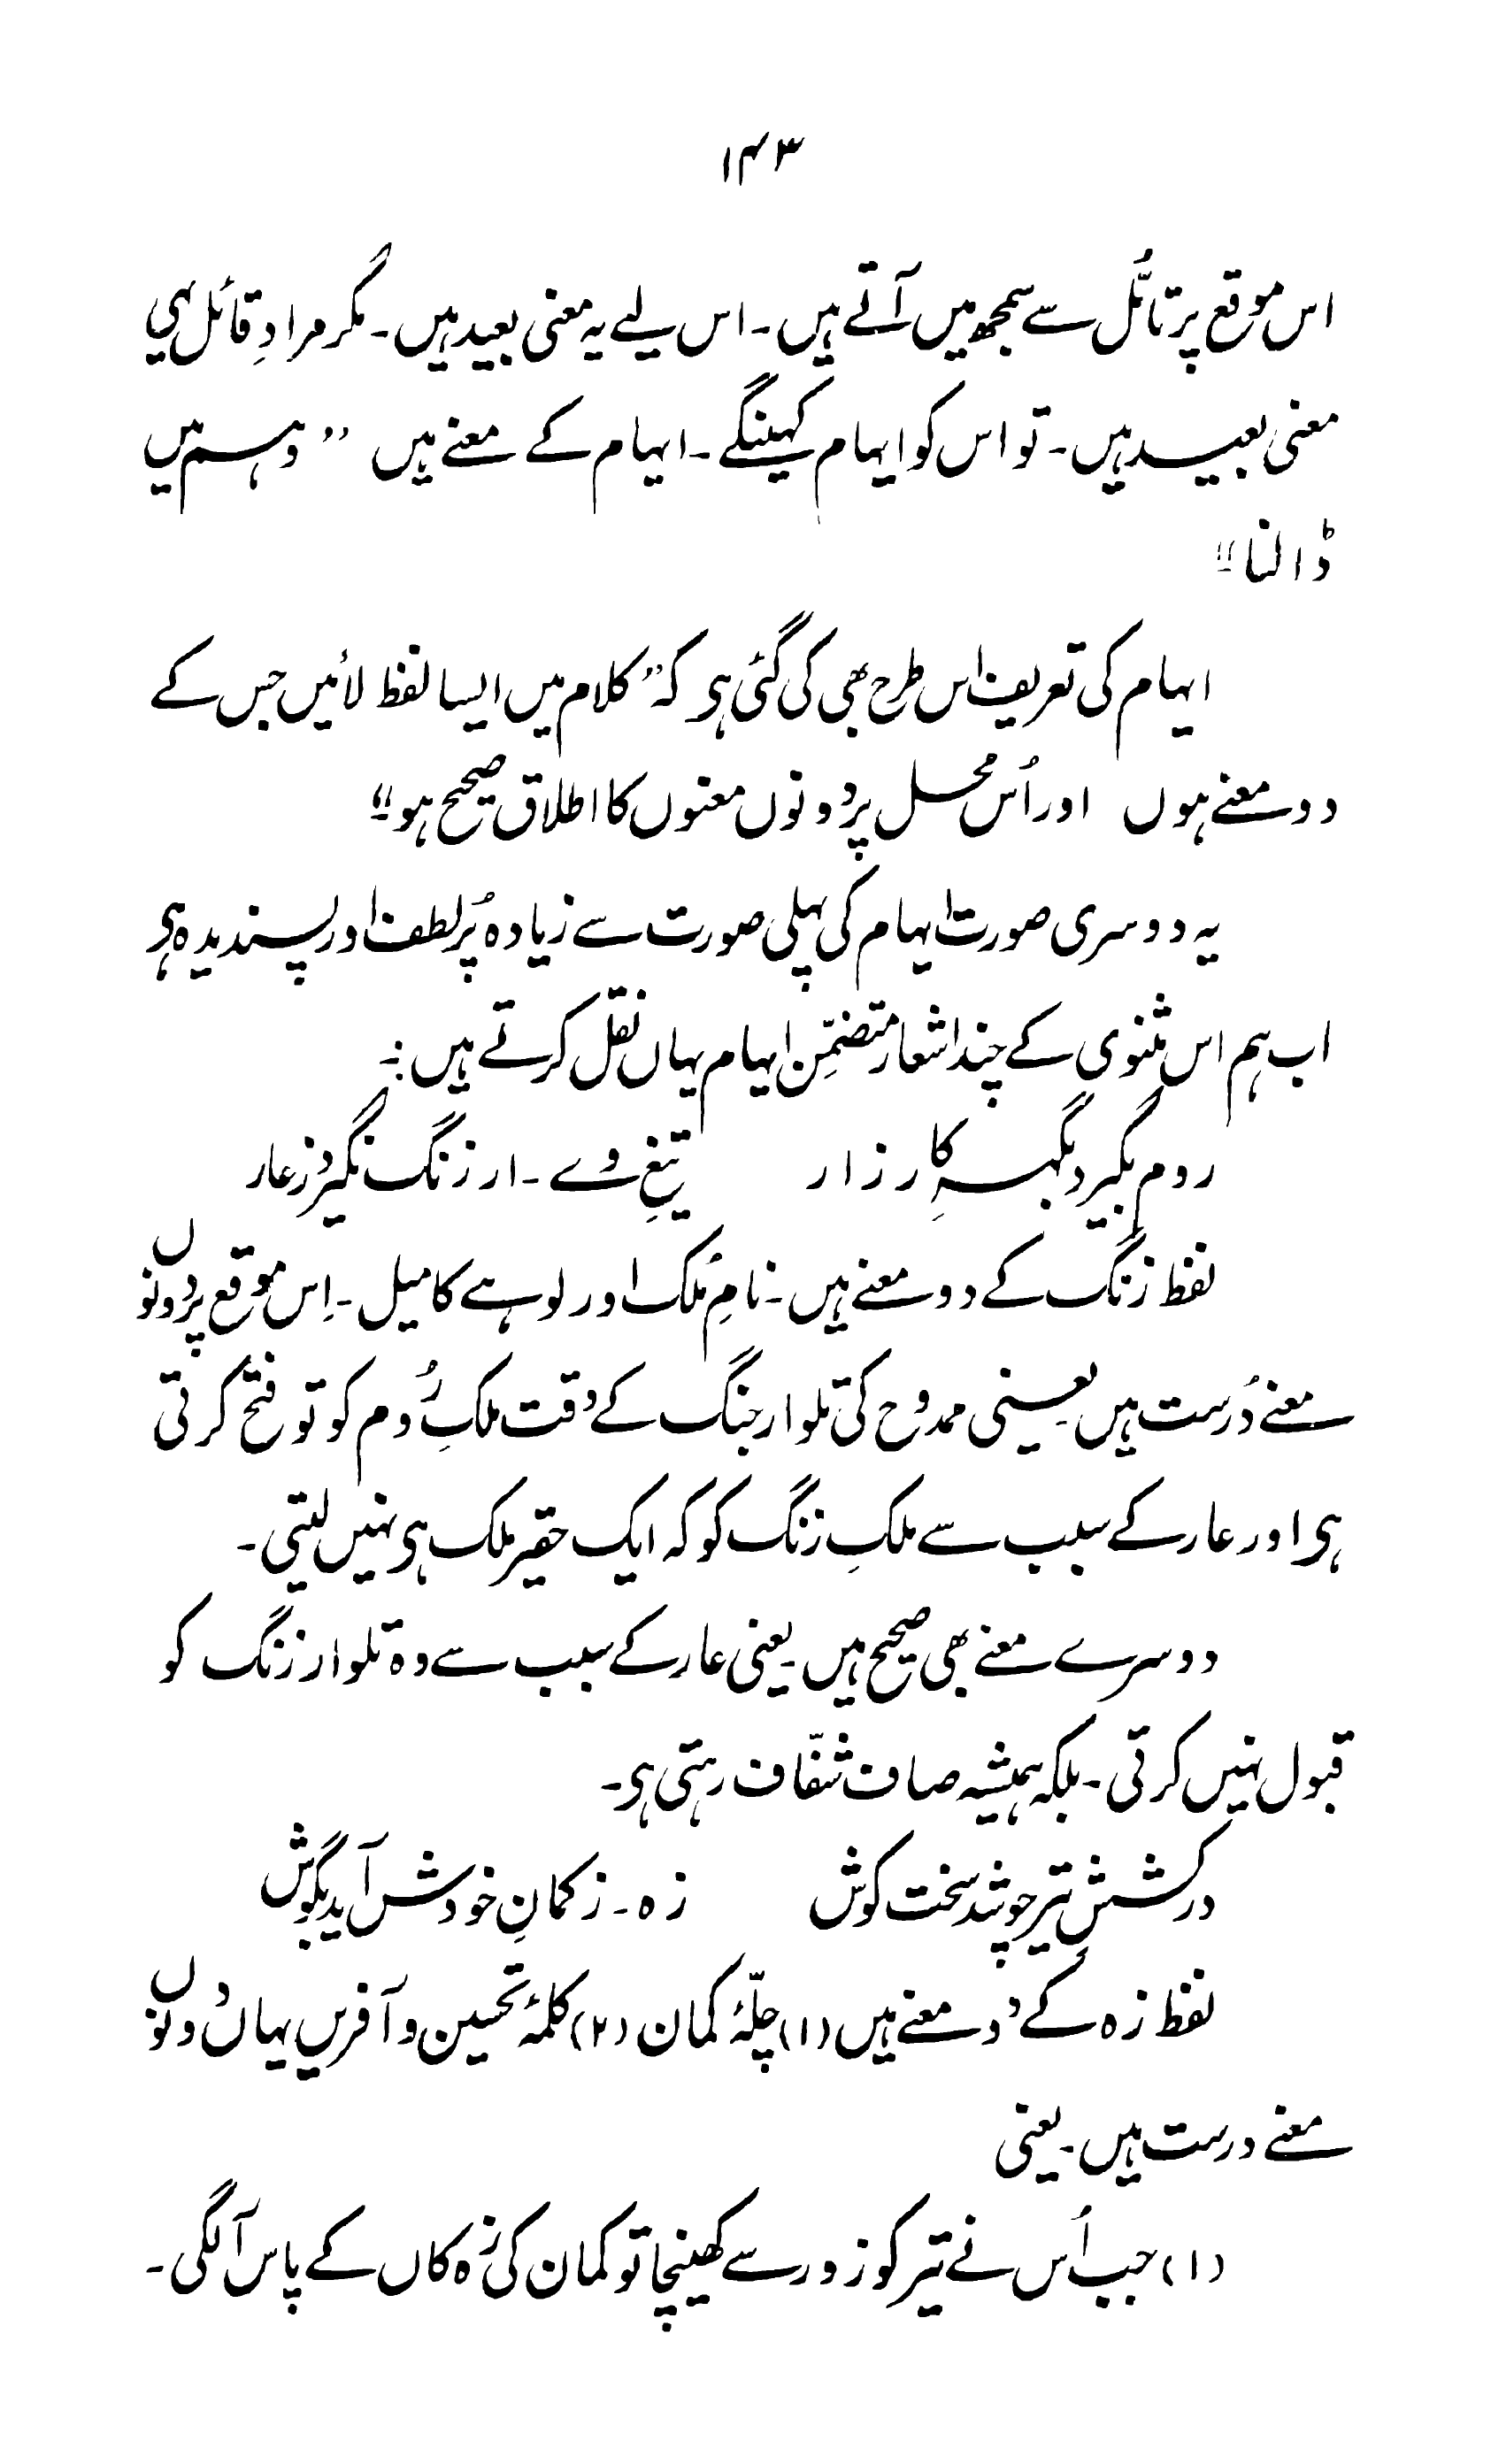 ۱۴۳
اس موقع پر تامُّل سے سمجھ میں آتے ہیں۔ اس لیے یہ معنی بعید ہیں۔ مگر مرادِ قائل یہی
معنی بعید ہیں۔ تو اس کو ایہام کہینگے۔ ایہام کے معنے ہیں ”وہم میں
ڈالنا“
ایہام کی تعریف اس طرح بھی کی گئی ہی کہ ”کلام میں ایسا لفظ لائیں جس کے
دو معنے ہوں اور اُس محل پر دونوں معنوں کا اطلاق صحیح ہو“
یہ دوسری صورت ایہام کی پہلی صورت سے زیادہ پُر لطف اور پسندیدہ ہی
اب ہم اس مثنوی کے چند اشعار متضمّنِ ایہام یہاں نقل کرتے ہیں:۔
روم بگیرد بگہِ کارزار تیغِ وے۔ ار زنگ نگیرد ز عار
لفظ زنگ کے دو معنے ہیں۔ نامِ مُلک اور لوہے کا میل۔ اِس موقع پر دونوں
معنے دُرست ہیں یعنی ممدوح کی تلوار جنگ کے وقت ملکِ رُوم کو تو فتح کرتی
ہی اور عار کے سبب سے ملکِ زنگ کو کہ ایک حقیر ملک ہی نہیں لیتی۔
دوسرے معنے بھی صحیح ہیں۔ یعنی عار کے سبب سے وہ تلوار زنگ کو
قبول نہیں کرتی۔ بلکہ ہمیشہ صاف شفّاف رہتی ہی۔
در کشش تیر چو شد سخت کوش زہ۔ ز کمانِ خودش آید بگوش
لفظ زہ کے دو معنے ہیں (۱) چلّۂ کمان (۲) کلمۂ تحسین و آفریں یہاں دونوں
معنے درست ہیں۔ یعنی
(۱) جب اُس نے تیر کو زور سے کھینچا تو کمان کی زہ کاں کے پاس آلگی۔